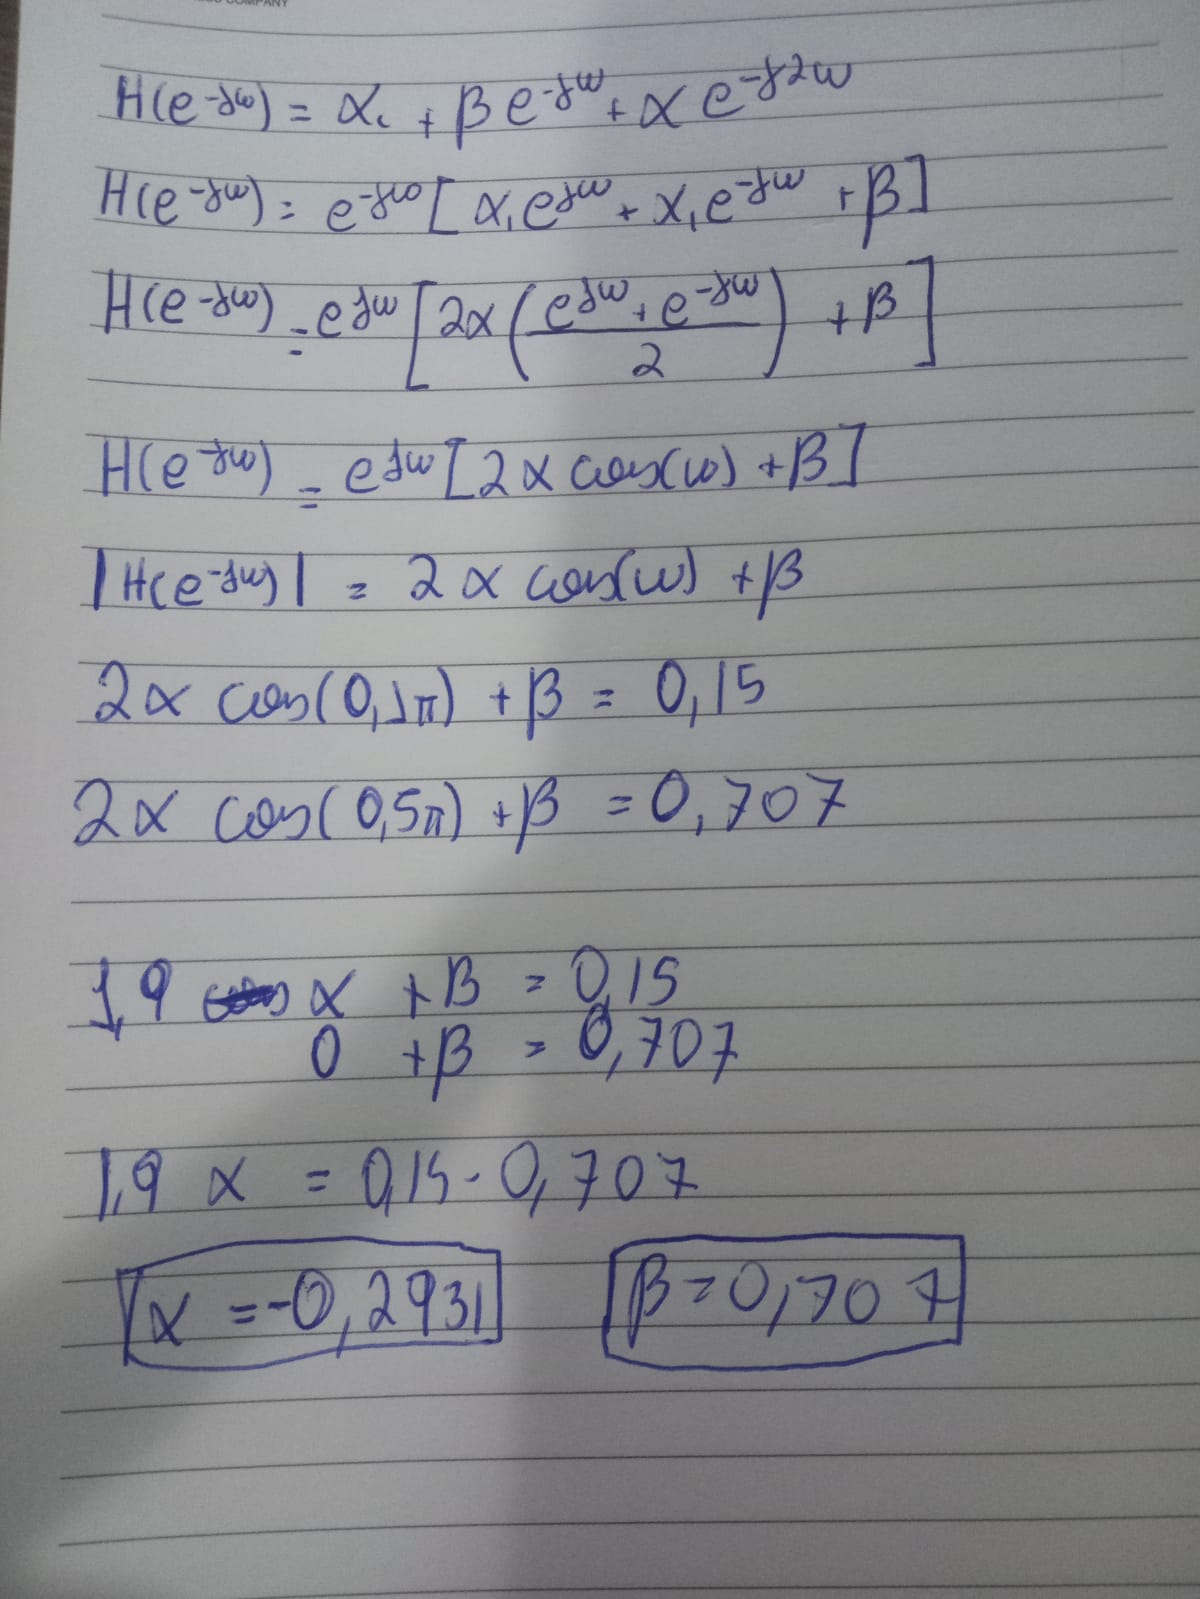 COMPANY
H(e^-jω) = α + β e^-jω + α e^-j2ω
H(e^-jω) = e^-jω [α, e^jω + α, e^-jω + β]
H(e^-jω) = e^jω [2α (e^jω + e^-jω / 2) + β]
H(e^-jω) = e^jω [2α cos(ω) + β]
|H(e^-jω)| = 2α cos(ω) + β
2α cos(0,1π) + β = 0,15
2α cos(0,5π) + β = 0,707
1,9 α + β = 0,15
0 + β = 0,707
1,9 α = 0,15 - 0,707
α = -0,2931 β = 0,707